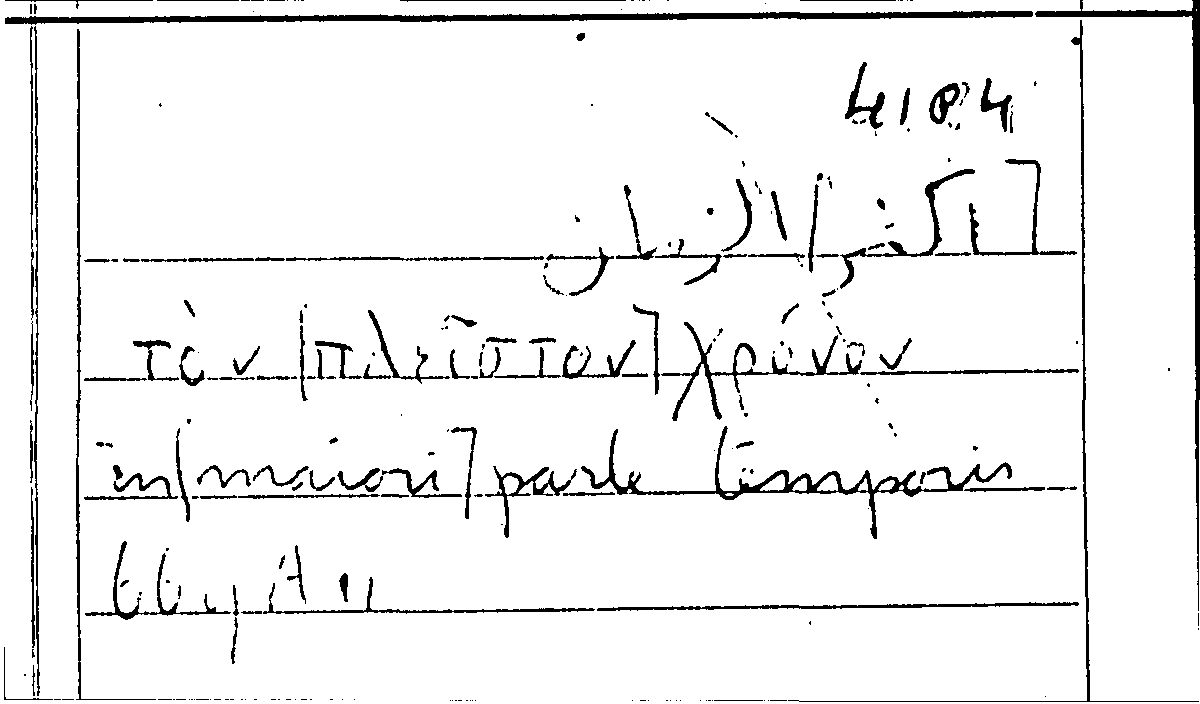 4184
[أكثر] الزمان
τὸν [πλεῖστον] χρόνον
in [maiori] parte temporis